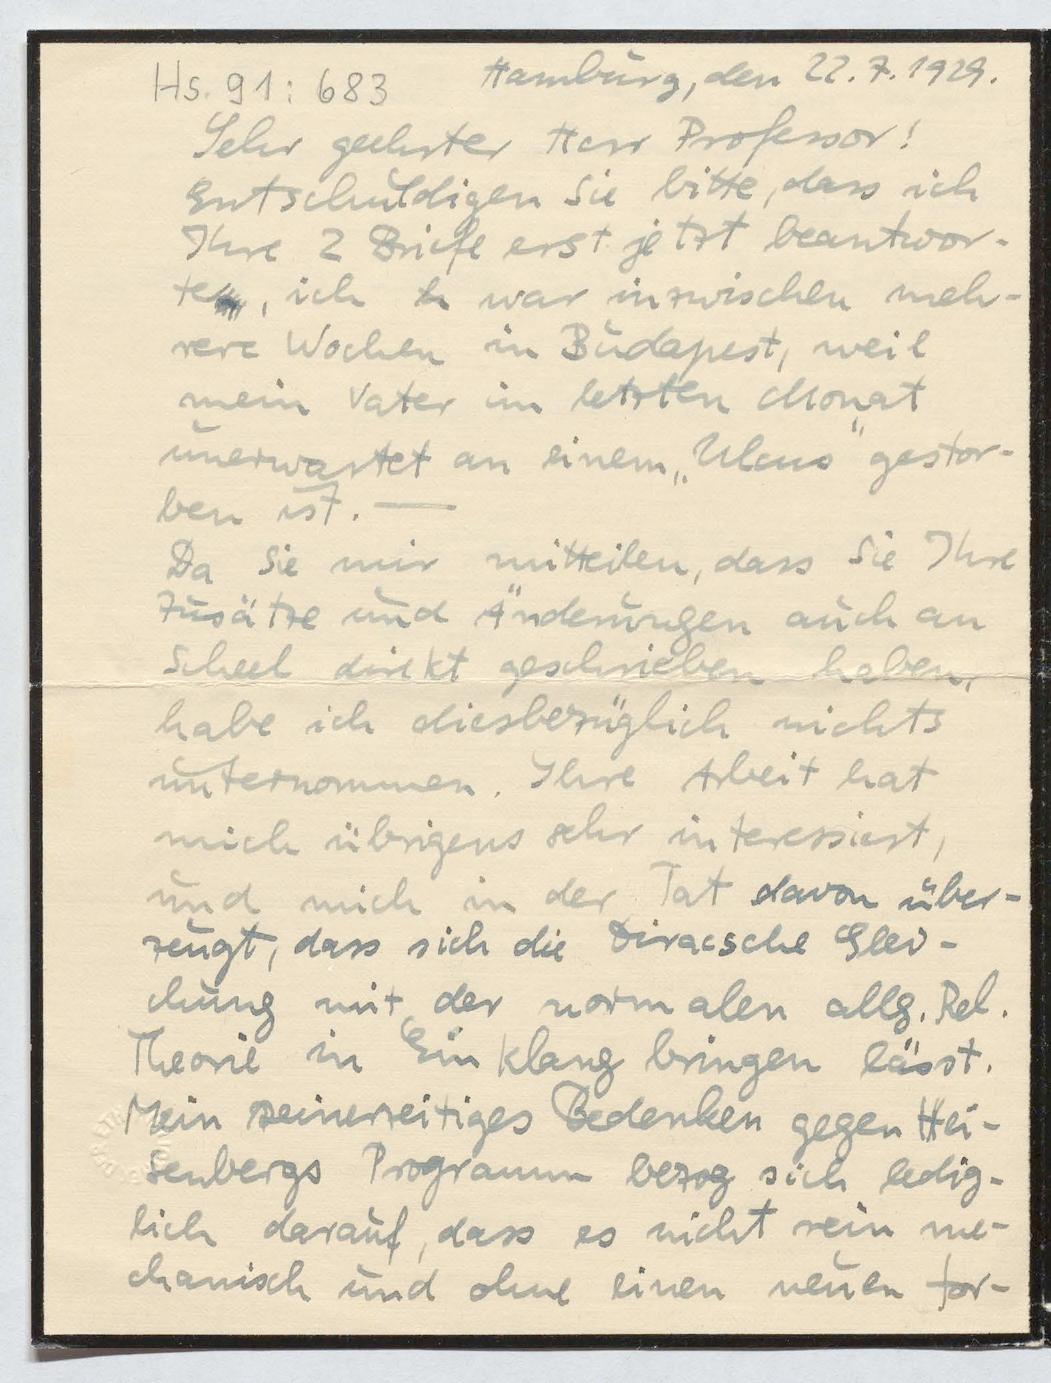 Hs. 91: 683
Hamburg, den 22. 7. 1929.
Sehr geehrter Herr Professor!
Entschuldigen Sie bitte, dass ich
Ihre 2 Briefe erst jetzt beantwor-
te, ich war inzwischen meh-
rere Wochen in Budapest, weil
mein Vater im letzten Monat
unerwartet an einem „Ulcus" gestor-
ben ist. —
Da Sie mir mitteilen, dass Sie Ihre
Zusätze und Änderungen auch an
Scheel direkt geschrieben haben,
habe ich diesbezüglich nichts
unternommen. Ihre Arbeit hat
mich übrigens sehr interessiert,
und mich in der Tat davon über-
zeugt, dass sich die Diracsche Glei-
chung mit der normalen allg. Rel.
Theorie in Einklang bringen lässt.
Mein seinerzeitiges Bedenken gegen Hei-
senbergs Programm bezog sich ledig-
lich darauf, dass es nicht rein me-
chanisch und ohne einen neuen for-